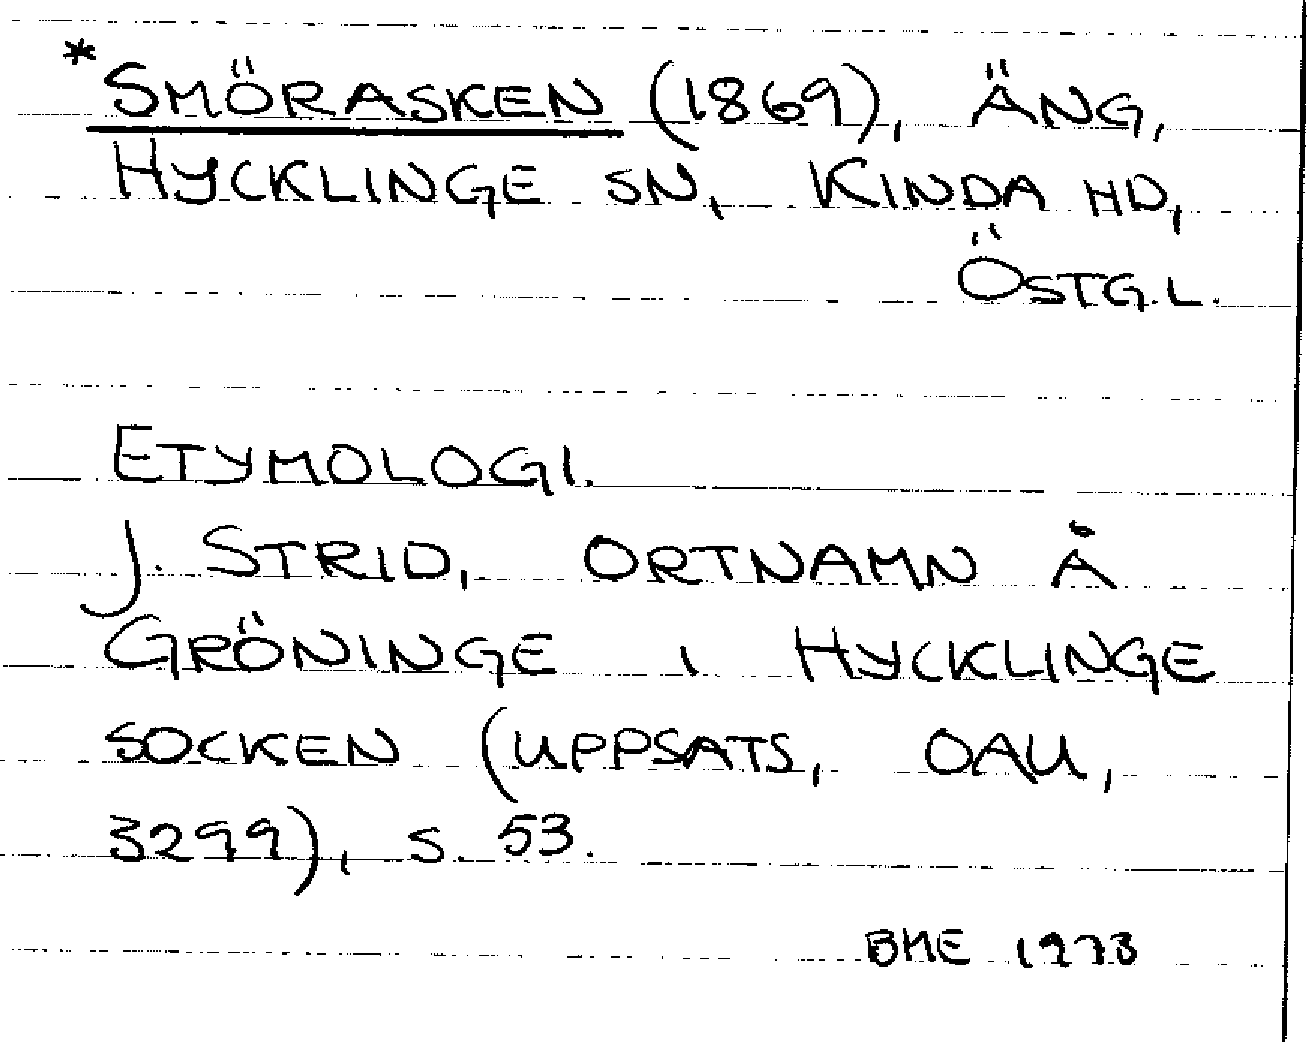 *SMÖRASKEN (1869), ÄNG,
HYCKLINGE SN, KINDA HD,
ÖSTG.L.
ETYMOLOGI.
J. STRID, ORTNAMN Å
GRÖNINGE I HYCKLINGE
SOCKEN (UPPSATS, OAU,
3299), S. 53.
BME 1973